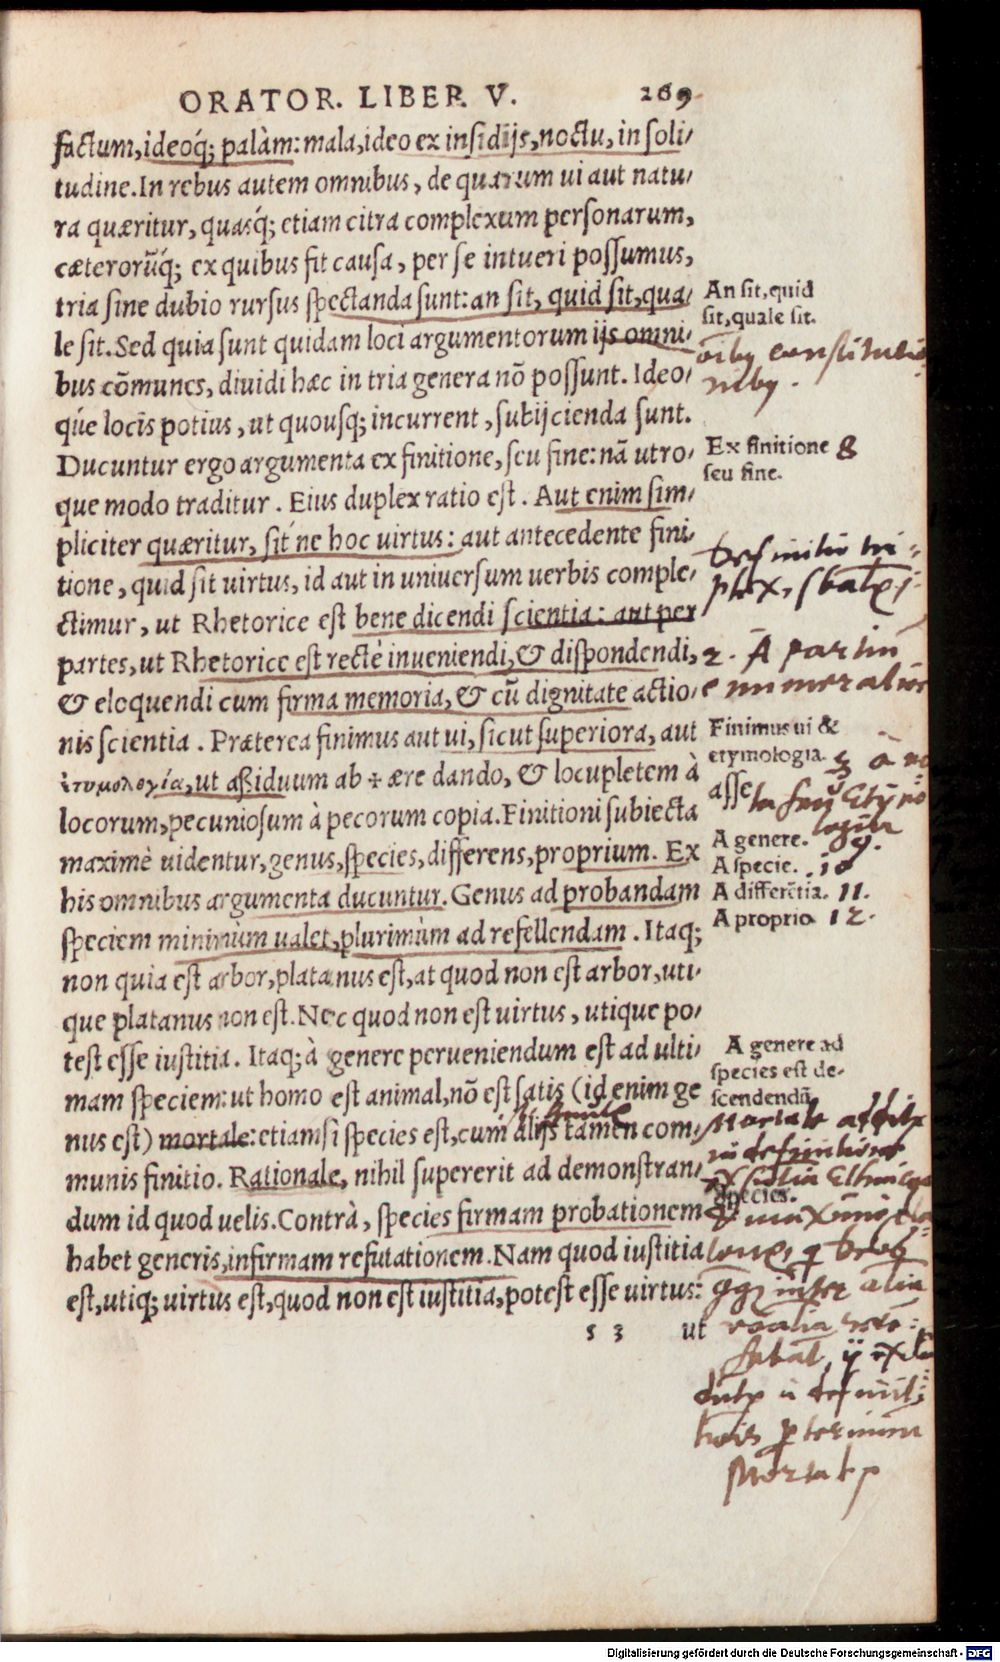 ORATOR. LIBER V. 269
factum, ideoq́; palàm: mala, ideo ex insidijs, noctu, in soli/
tudine. In rebus autem omnibus, de quarum ui aut natu/
ra quæritur, quasq́; etiam citra complexum personarum,
cæterorũq́; ex quibus fit causa, per se intueri possumus,
tria sine dubio rursus spectanda sunt: an sit, quid sit, qua/
le sit. Sed quia sunt quidam loci argumentorum ijs omni/
bus cõmunes, diuidi hæc in tria genera nõ possunt. Ideo/
qúe locis potius, ut quousq; incurrent, subijcienda sunt.
Ducuntur ergo argumenta ex finitione, seu fine: nã utro/
que modo traditur. Eius duplex ratio est. Aut enim sim/
pliciter quæritur, sit ne hoc uirtus: aut antecedente fini/
tione, quid sit uirtus, id aut in uniuersum uerbis comple/
ctimur, ut Rhetorice est bene dicendi scientia: aut per
partes, ut Rhetorice est rectè inueniendi, & dispondendi,
& eloquendi cum firma memoria, & cũ dignitate actio/
nis scientia. Præterea finimus aut ui, sicut superiora, aut
ἐτυμολογία, ut aßiduum ab ære dando, & locupletem à
locorum, pecuniosum à pecorum copia. Finitioni subiecta
maximè uidentur, genus, species, differens, proprium. Ex
his omnibus argumenta ducuntur. Genus ad probandam
speciem minimùm ualet, plurimùm ad refellendam. Itaq;
non quia est arbor, platanus est, at quod non est arbor, uti/
que platanus non est. Nec quod non est uirtus, utique po/
test esse iustitia. Itaq; à genere perueniendum est ad ulti/
mam speciem: ut homo est animal, nõ est satis (id enim ge
nus est) mortale: etiamsi species est, cum alijs tamen com/
munis finitio. Rationale, nihil supererit ad demonstran/
dum id quod uelis. Contrà, species firmam probationem
habet generis, infirmam refutationem. Nam quod iustitia
est, utiq; uirtus est, quod non est iustitia, potest esse uirtus:
s 3 ut
An sit, quid
sit, quale sit.
Ex finitione 8
seu fine.
2. A partiũ
Finimus ui &
etymologia.
A genere. 9.
A specie. 10
A differẽtia. 11.
A proprio 12.
A genere ad
species est de-
scendendũ
Species.
Digitalisierung gefördert durch die Deutsche Forschungsgemeinschaft - DFG